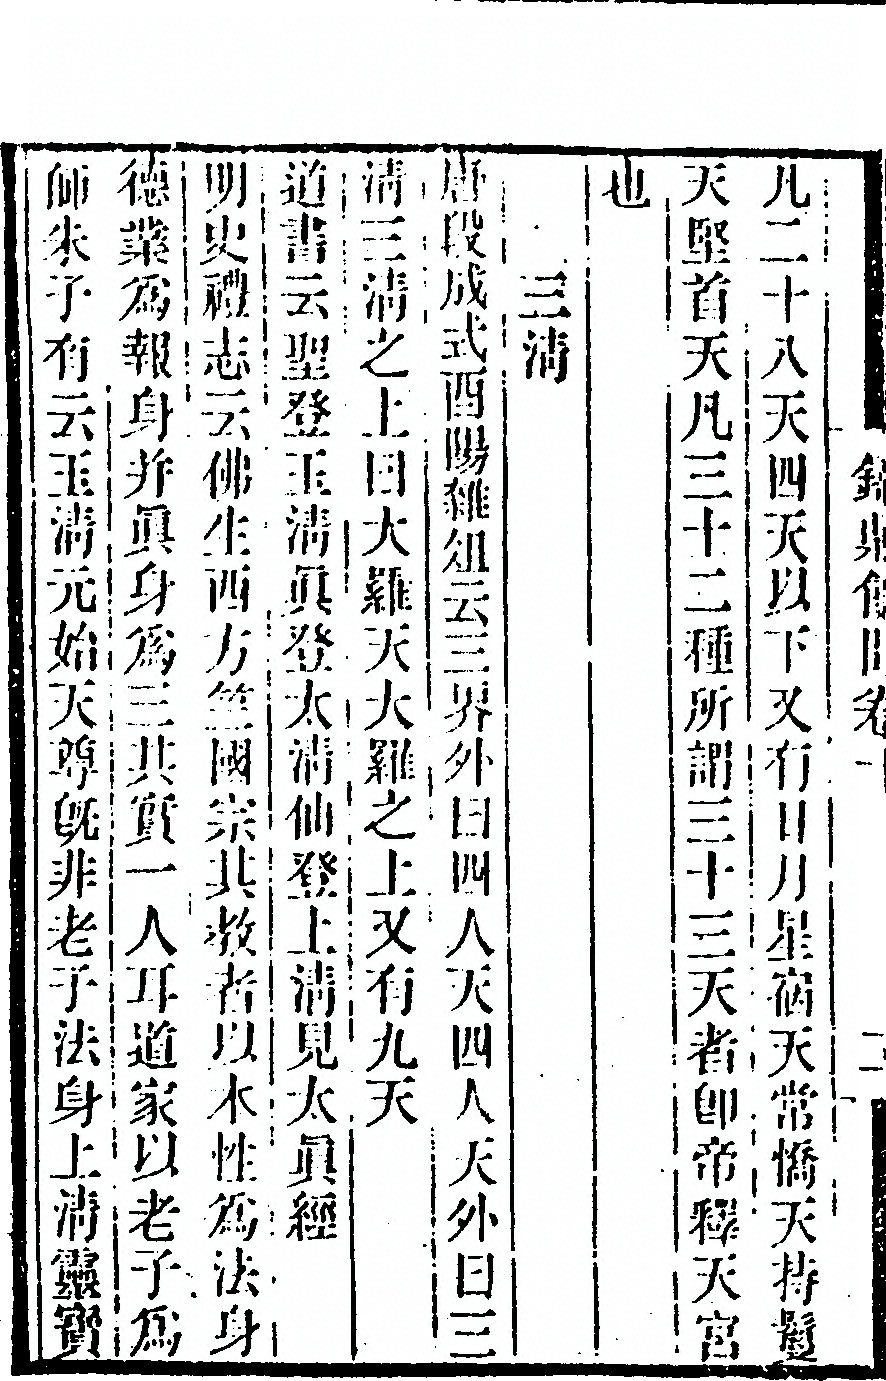 凡二十八天四天以下又有日月星宿天常憍天持鬘
天堅首天凡三十二種所謂三十三天者卽帝釋天宮
也
三淸
唐段成式酉陽雜俎云三界外曰四人天四人天外曰三
淸三淸之上曰大羅天大羅之上又有九天
道書云聖登玉淸眞登太淸仙登上淸見太眞經
明史禮志云佛生西方竺國宗其敎者以本性爲法身
德業爲報身并眞身爲三其實一人耳道家以老子爲
師朱子有云玉淸元始天尊旣非老子法身上淸靈寶